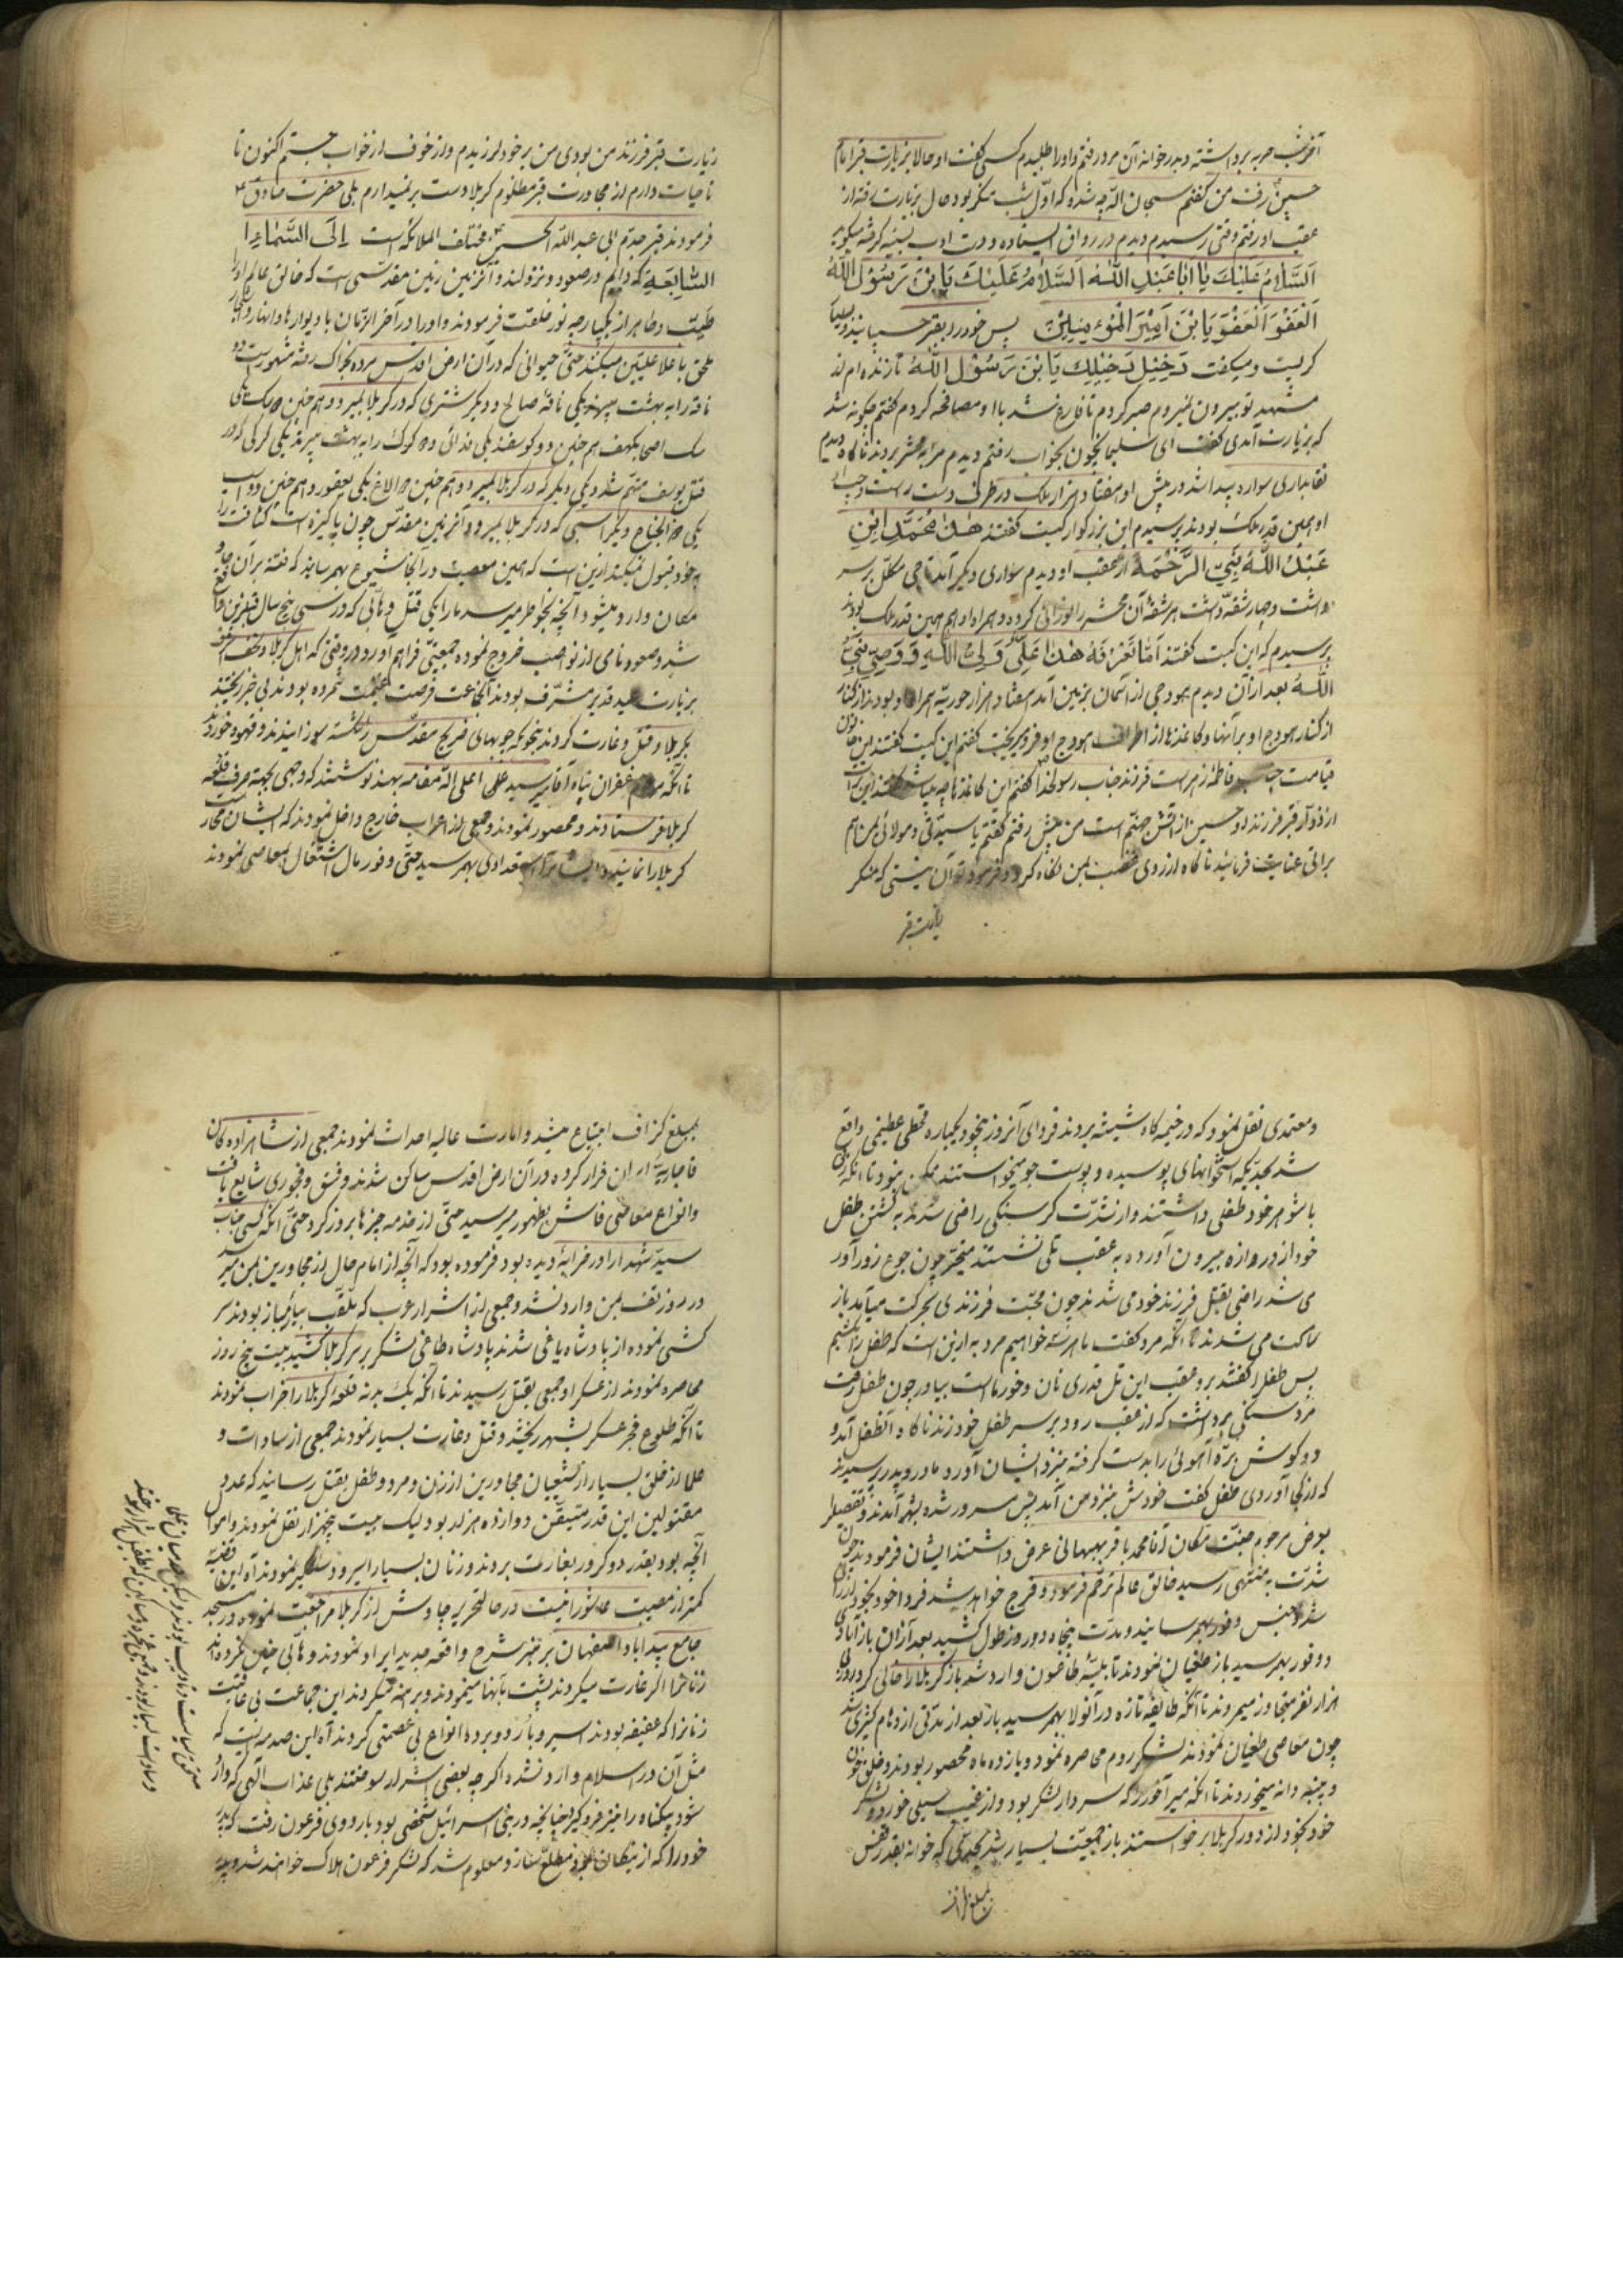 آخر شب حربه برداشته و بدر خوانه آن مرد رفتم و او را طلبیدم کسی گفت او حالا بزیارت قبر امام
حسین رفت من گفتم سبحان الله چه شده که اوّل شب منکر بود حال بزیارت رفته از
عقب او رفتم وقتی رسیدم دیدم در رواق ایستاده و دست ادب بسینه گرفته میگوید
اَلسَّلامُ عَلَیْكَ یٰا اَبٰا عَبْدِ اللّٰهِ اَلسَّلامُ عَلَیْكَ یَا بْنَ رَسُوْلِ اللّٰهِ
اَلْعَفْوَ اَلْعَفْوَ یَا بْنَ اَمِیْرَ الْمُؤمِنِیْنَ پس خود را بقبر چسبانید و بسیار
گریست و میگفت دَخِیْل دَخِیْلِك یَا بْنَ رَسُوْلِ اللّٰهِ تا زنده ام از
مشهد تو بیرون نمیروم صبر کردم تا فارغ شد با او مصافحه کردم گفتم چگونه شد
که بزیارت آمدی گفت ای سلیمان چون بخواب رفتم دیدم مرا به محشر بردند ناگاه دیدم
نقابداری سواره پیدا شد در پیش او هفتاد هزار ملک در طرف دست راست و چپ
او همین قدر ملک بودند پرسیدم این بزرگوار کیست گفتند هٰذٰا مُحَمَّدِ ابْنِ
عَبْدُ اللّٰهِ نَبِیّ الرَّحْمَة از عقب او دیدم سواری دیگر آمد تاجی مکلّل بر سر
داشت و چهار شقّه داشت هر شقّه آن محشر را نورانی کرده و همراه او هم همین قدر ملک بودند
پرسیدم که این کیست گفتند اَمٰا تَعْرِفَهُ هٰذٰا عَلِیٌّ وَلِیُّ اللّٰهِ وَ وَصِیّ نَبِیّ
اللّٰهُ بعد از آن دیدم هودجی از آسمان بزمین آمد هفتاد هزار حوریّه همراه او بودند از کنار
از کنار هودج او براتها و کاغذها از اطراف هودج او فرو میریخت گفتم این کیست گفتند این خاتون
قیامت جناب فاطمه زهراست فرزند جناب رسولخدا گفتم این کاغذها چه میباشد گفتند این برات
از زوّار قبر فرزند او حسین از آتش جهنّم است من پیش رفتم گفتم یا سیّدتی و مولاتی بمن هم
براتی عنایت فرمائید ناگاه از روی غضب بمن نگاه کرد و فرمود تو آن نیستی که منکر
زیارت قبر
زیارت قبر فرزند من بودی من بر خود لرزیدم و از خوف از خواب جستم اکنون تا
تا حیات دارم از مجاورت قبر مظلوم کربلا دست بر نمیدارم بلی حضرت صادق
فرمودند قبر جدّم ابی عبد اللّه الحسین مختلف الملائکه است إِلَی السَّمٰاءِ
السّٰابِعَةِ که دایم در صعود و نزولند و آنزمین زمین مقدّسی است که خالق عالم او را
طیّب و طاهر از یکپارچه نور خلقت فرمودند و او را در آخر الزّمان با دیوارها و انهار
ملحق باعلا علیّین میکند حتّی حیوانی که در آن ارض اقدس مرده بخاک رفته مشهور است دو
ناقه را به بهشت میبرند یکی ناقه صالح و دیگر شتری که در کربلا بمیرد و هم چنین
سک اصحاب کهف هم چنین دو کوسفند یکی فدائی و گرگ را به بهشت میبرند یکی گرگی که در
قتل یوسف متهم شد و یکی دیگر که در کربلا بمیرد و هم چنین الاغ یکی یعفور و هم چنین دو اسب
یکی ذو الجناح و دیگر اسبی که در کربلا بمیرد و آنزمین مقدّس چون پاکیزه است کثافت را
بخود قبول نمیکند ازین است که همین معصیت در آنجا شیوع بهمرسانید که فتنه بر آن
مکان وارد میشود آنچه بخواطر میرسد ما را یکی قتل وهّابی که در سی پنج سال قبل ازین واقع
شد و صعود نامی از نواصب خروج نموده جمعیّتی فراهم آورد در وقتی که اهل کربلا و نجف اشرف
بزیارت عید غدیر مشرّف بودند آنجماعت فرصت غنیمت شمرده بودند بی خبر ریختند
بکربلا و قتل و غارت کردند بنحوی که چوبهای ضریح مقدّس را شکسته سوزانیدند و قهوه خوردند
تا آنکه مرحوم غفران پناه آقا میر سید علی اعلی الله مقامه بهند نوشتند که وجهی بجهة صرف قلعه
کربلا فرستادند و محصور نمودند و جمعی از اعراب خارج داخل نمودند که ایشان محارست
کربلا را نمایند و ایشانرا استعدادی بهمرسید حتّی وفور مال اشتغال بمعاصی نمودند
و معتمدی نقل نمود که در خیمه گاه شیشه بردند فردای آنروز بخود یکباره قحطی عظیمی واقع
شد بحدّیکه استخوانهای پوسیده و پوست جو میخواستند ممکن نبود تا آنکه زنی
با شوهر خود طفلی داشتند و از شدّت گرسنگی راضی شدند به کشتن طفل
خود از دروازه بیرون آورده به عقب تلی نشستند متحیّر چون جوع زور آور
می شد راضی بقتل فرزند خود می شدند چون محبّت فرزندی بحرکت میآمد باز
ساکت می شدند تا آنکه مرد گفت ما هر سه خواهیم مرد به ازین است که طفل را بکشیم
پس طفل را گفتند برو عقب این تل قدری نان و خورما است بیاور چون طفل رفت
مرد سنگی برداشت که از عقب رود بر سر طفل خود زند ناگاه آنطفل آمد و
دو گوش برّه آهوئی را بدست گرفته بنزد ایشان آورد مادر و پدر پرسیدند
که از کجا آوردی طفل گفت خودش بنزد من آمد پس مسرور شده بشهر آمدند و تفصیل را
بعرض مرحوم جنّت مکان آقا محمد باقر بهبهانی عرض داشتند ایشان فرمودند چون
شدّت به منتهی رسید خالق عالم ترحّم فرمود و فرج خواهد شد فردا خود بخود ارزانی
شد و جنس وفور بهمرسانید و مدّت پنجاه دو روز طول کشید بعد از آن باز آبادی
و وفور بهمرسید باز طغیان نمودند تا بلیّه طاعون وارد شد باز کربلا را خالی کرد روزی
هزار نفر متجاوز میمردند تا آنکه طایفه تازه در آنولا بهمرسید باز بعد از مدّتی ازدحام کثیری شد
چون معاصی طغیان نمودند لشکر روم محاصره نمود و یازده ماه محصور بودند و خلق خون
و پنبه دانه میخوردند تا آنکه میر آخور که سردار لشکر بود و از غیب سیلی خورد و لشکر
خود بخود از دور کربلا برخواستند باز جمعیّت بسیار شد بحدّی که خوانه بقدر قفس
بمبلغ گزاف
بمبلغ گزاف اجتیاع میشد و امارت عالیه احداث نمودند جمعی از شاهزاده گان
قاجاریّه ایران فرار کرده در آن ارض اقدس ساکن شدند و فسق و فجوری شایع یافت
و انواع معاصی فاش بظهور میرسید حتّی از خدمه چیزها بروز کرد حتّی آنکه کسی جناب
سیّد شهدا را در خرابه دیده بود فرموده بود که آنچه از امام حال از مجاورین بمن میرسد
در روز تف بمن وارد نشد و جمعی از اشرار عرب که ملقّب بیارماز بودند سر
کشی نموده از پادشاه یاغی شدند پادشاه طاغی لشکر بر سر کربلا کشید بیست پنج روز
محاصره نمودند از عسکر او جمعی بقتل رسیدند تا آنکه یک بدنه قلعه کربلا را خراب نمودند
تا آنکه طلوع فجر عسکر بشهر ریختند و قتل و غارت بسیار نمودند جمعی از سادات و
علما از خلق بسیار از شیعیان مجاورین از زن و مرد و طفل بقتل رسانیدند که عدد
مقتولین این قدر متیقّن دوازده هزار بود و لیک بیست پنجهزار نقل نمودند و اموال
آنچه بود بقدر دو کرور بغارت بردند و زنان بسیار اسیر و دستگیر نمودند آه این قضیّه
کمتر از مصیبت عاشورا نیست در حالتحریر چاوش از کربلا مراجعت نموده در مسجد
جامع بیداباد اصفهان بر منبر شرح واقعه جدید ایراد نمودند وهّابی چنین نکرده اند
زنانرا اگر غارت میکردند پشت بآنها مینمودند و برهنه میکردند این جماعت بی عاقبت
زنانرا که عفیفه بودند اسیر و بازار و برده انواع بی عصمتی کردند آه این صدمه ایست که
مثل آن در اسلام وارد نشده اگر چه بعضی اشرار سوختند بلی عذاب الهی که وارد
شود بیگناه را نیز فرو گیرد چنانچه در بنی اسرائیل شخصی بود باردوی فرعون رفت که پدر
خود را که از نیکان بود مطلع سازد و معلوم شد که لشکر فرعون هلاک خواهند شد و چه